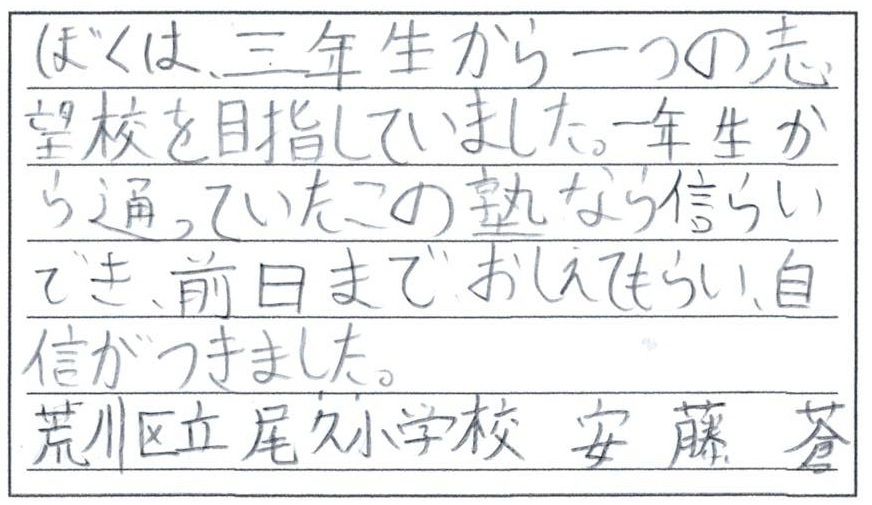 ぼくは、三年生から一つの志
望校を目指していました。一年生か
ら通っていたこの塾なら信らい
でき、前日までおしえてもらい、自
信がつきました。
荒川区立尾久小学校 安藤 蒼